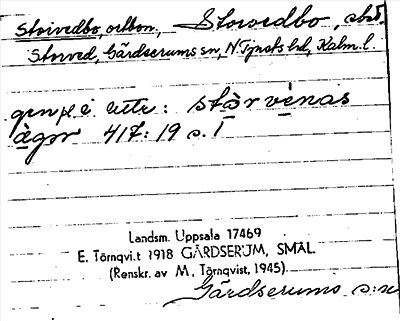 Storvedbo, ortbon., Storvedbo, sbst.
Storved, Gårdserums sn, N Tjusts hd, Kalm. l.
gen. pl. i uttr: stårvénas
ägor 417: 19 s. I
Landsm. Uppsala 17469
E. Törnqvi.t 1918 GÄRDSERUM, SMÅL.
(Renskr. av M. Törnqvist, 1945).
Gärdserums s:n